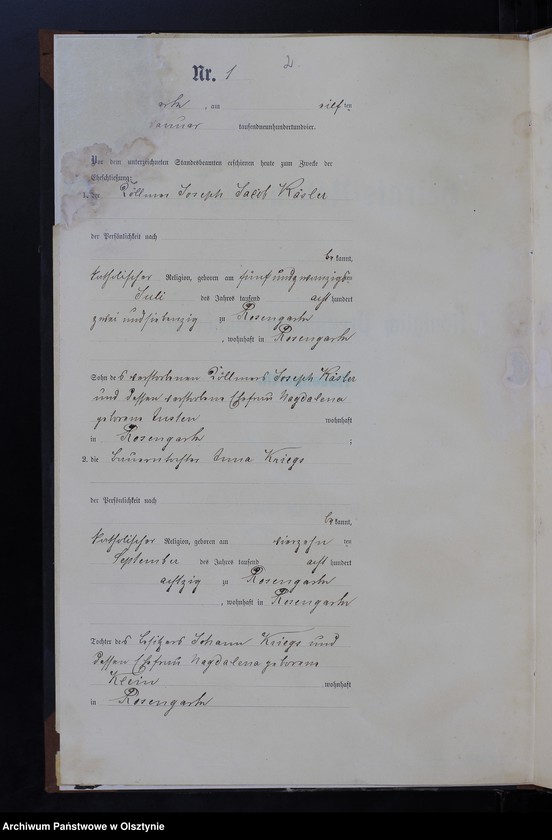 2.
Nr. 1
, am eilf ten
tausendneunhundertundvier.
Vor dem unterzeichneten Standesbeamten erschienen heute zum Zwecke der
Eheschließung:
1. der Köllmer Joseph Jacob Käsler
der Persönlichkeit nach
be kannt,
katholischer Religion, geboren am fünfundzwanzigsten
Juli des Jahres tausend acht hundert
zweiundsiebenzig zu Rosengarth
, wohnhaft in Rosengarth
Sohn des verstorbenen Köllmers Joseph Käsler
und dessen verstorbene Ehefrau Magdalena
geborene
wohnhaft
in Rosengarth ;
2. die Bauerntochter Anna Kriegs
der Persönlichkeit nach
be kannt,
katholischer Religion, geboren am vierzehn ten
September des Jahres tausend acht hundert
achtzig zu Rosengarth
, wohnhaft in Rosengarth
Tochter des Besitzers Johann Kriegs und
dessen Ehefrau Magdalena geborene
Klein wohnhaft
in Rosengarth
Archiwum Państwowe w Olsztynie